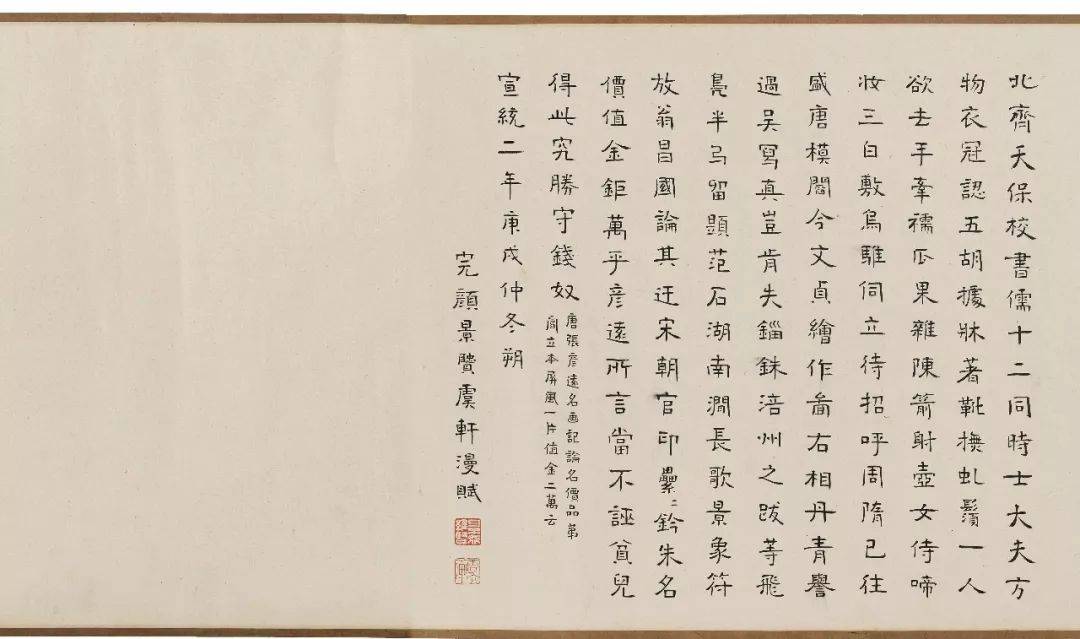 北齊天保校書儒十二同時士大夫方
物衣冠認五胡據牀著靴撫虬鬚一人
欲去手牽襦瓜果雜陳箭射壺女侍啼
妝三白敷烏騅伺立待招呼周隋已往
盛唐模閻令文貞繪作啚右相丹青譽
過吳寫真豈肯失錙銖涪州之跋等飛
鳧半烏留題范石湖南澗長歌景象符
放翁昌國論其迂宋朝官印纍〻鈐朱名
價值金鉅萬乎彥遠所言當不誣貧兒
得此究勝守錢奴
唐張彥遠名画記論名價品第
閻立本屏風一片值金二萬云
宣統二年庚戌仲冬朔
完顏景賢虞軒漫賦